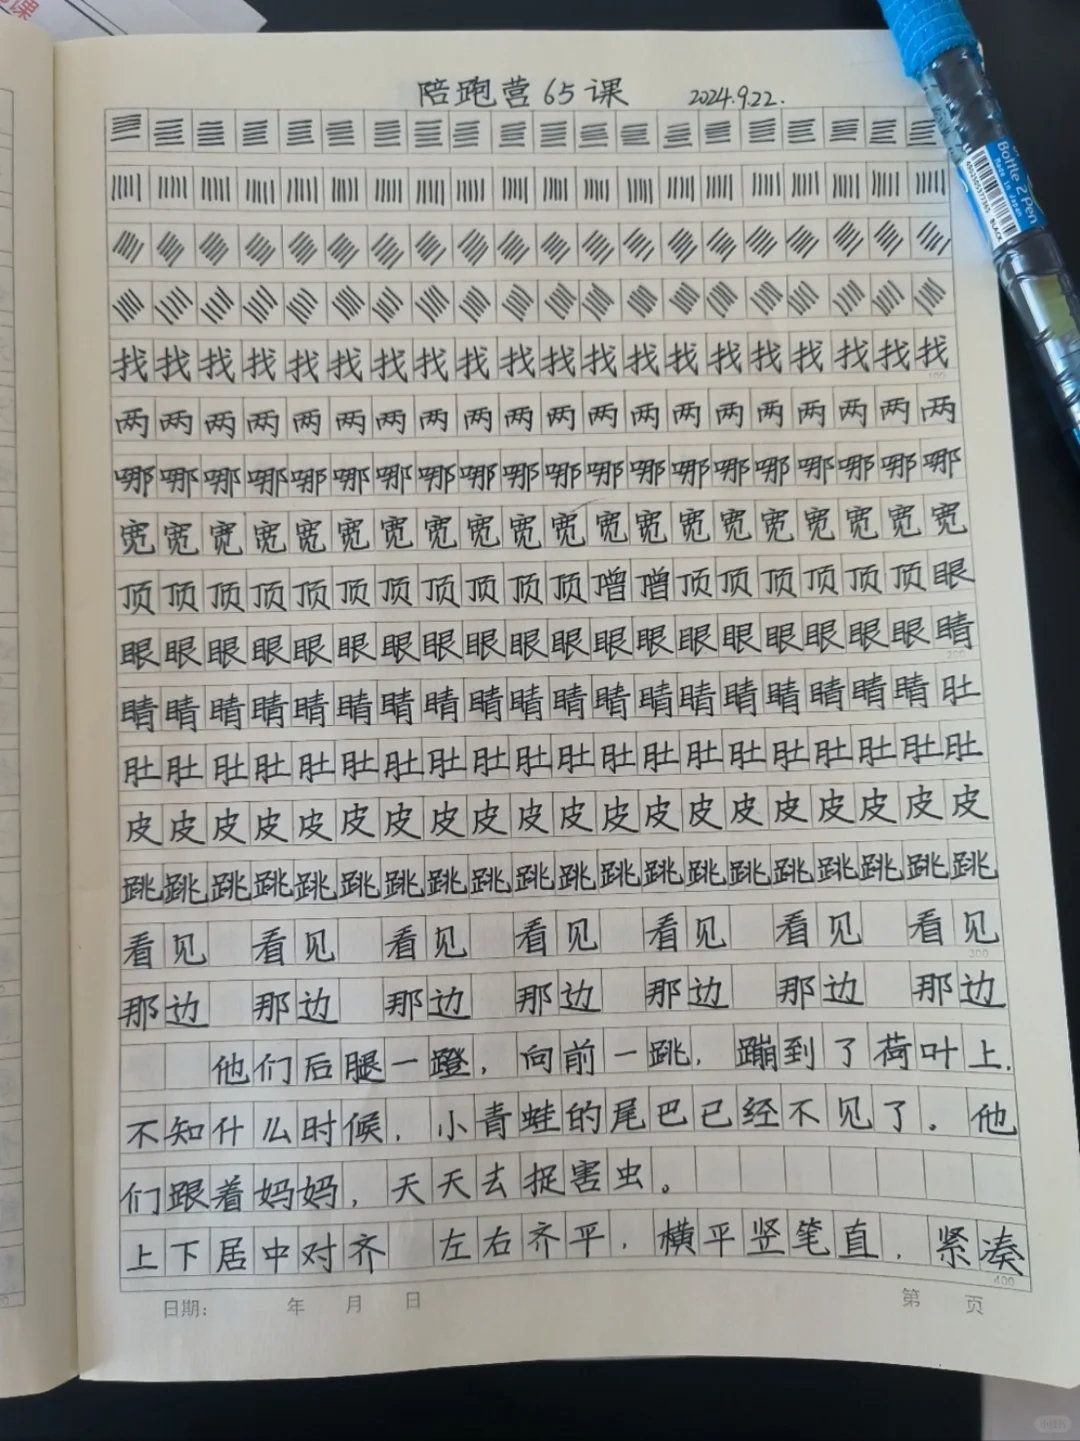 课
陪跑营65课 2024.9.22.
找找找找找找找找找找找找找找找找找找找找
100
两两两两两两两两两两两两两两两两两两两两
哪哪哪哪哪哪哪哪哪哪哪哪哪哪哪哪哪哪哪哪
宽宽宽宽宽宽宽宽宽宽宽宽宽宽宽宽宽宽宽宽
顶顶顶顶顶顶顶顶顶顶顶噌噌顶顶顶顶顶顶眼
眼眼眼眼眼眼眼眼眼眼眼眼眼眼眼眼眼眼眼睛
200
睛睛睛睛睛睛睛睛睛睛睛睛睛睛睛睛睛睛睛肚
肚肚肚肚肚肚肚肚肚肚肚肚肚肚肚肚肚肚肚肚
皮皮皮皮皮皮皮皮皮皮皮皮皮皮皮皮皮皮皮皮
跳跳跳跳跳跳跳跳跳跳跳跳跳跳跳跳跳跳跳跳
看见 看见 看见 看见 看见 看见 看见
300
那边 那边 那边 那边 那边 那边 那边
他们后腿一蹬，向前一跳，蹦到了荷叶上.
不知什么时候，小青蛙的尾巴已经不见了。他
们跟着妈妈，天天去捉害虫。
上下居中对齐 左右齐平，横平竖笔直，紧凑
400
日期： 年 月 日 第 页
Bottle 2 Pen
Made in Japan
BLACK